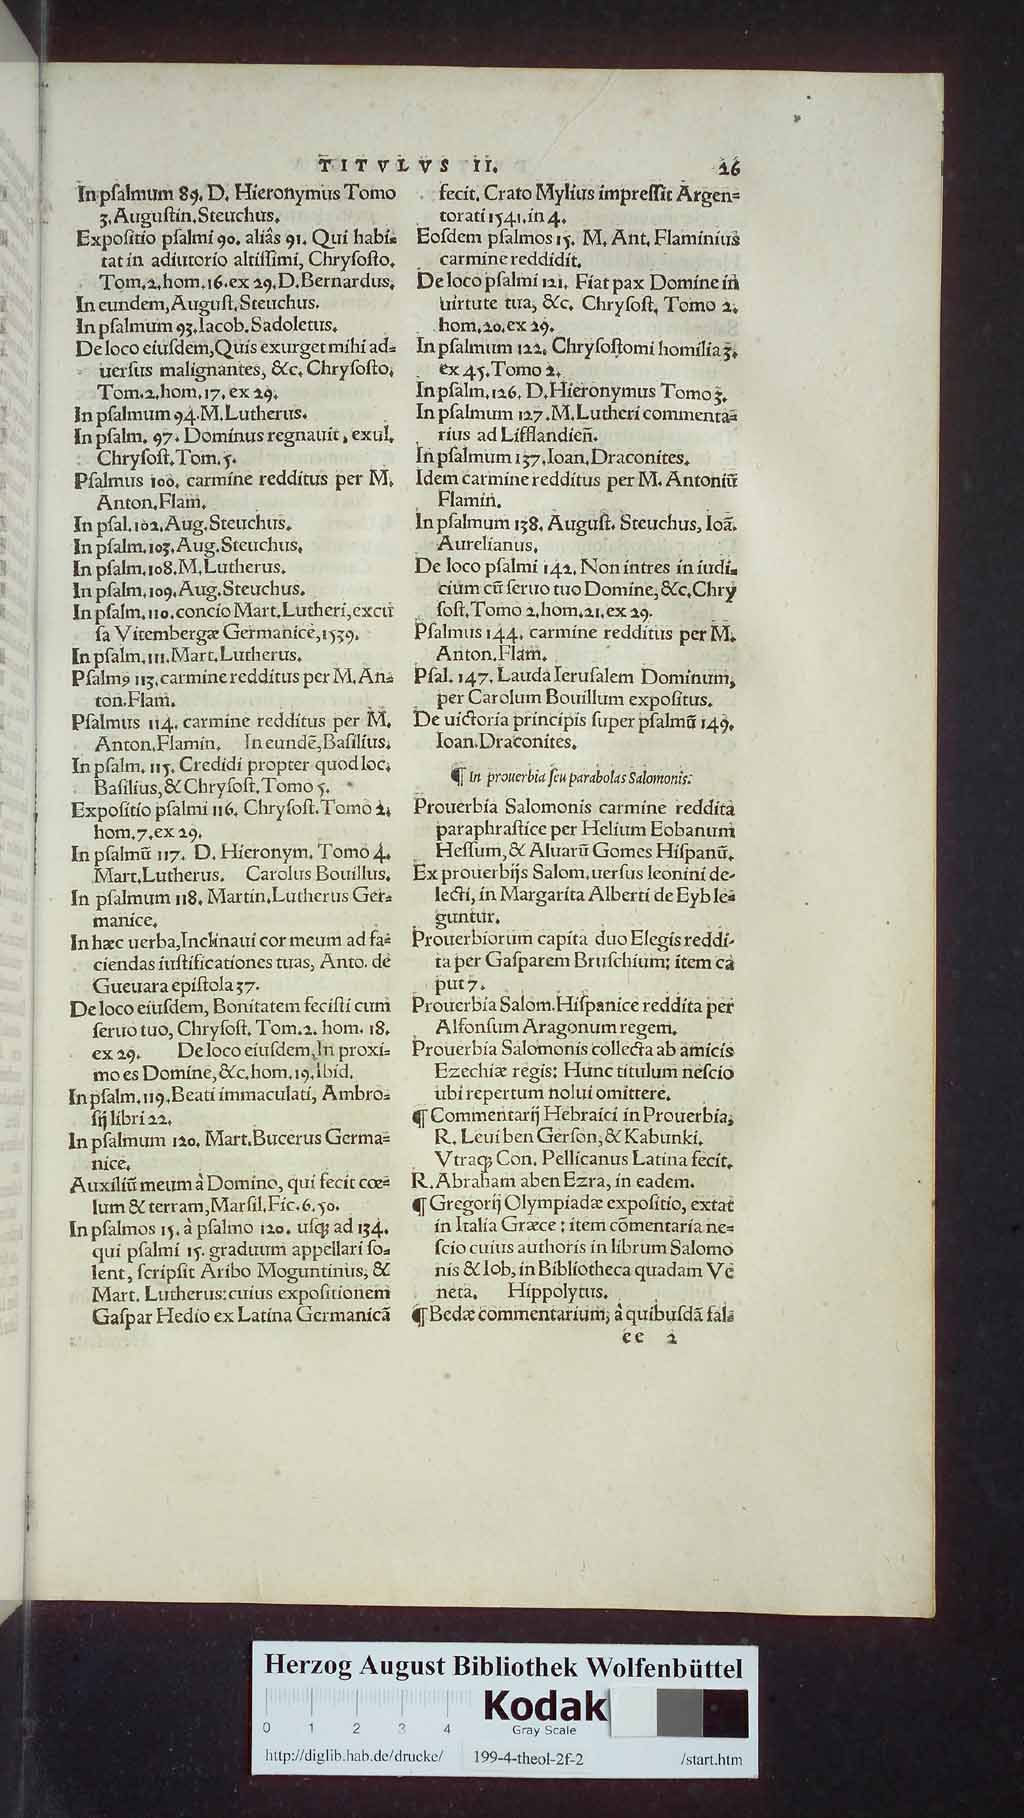 TITVLVS II. 26
In psalmum 89. D. Hieronymus Tomo
3. Augustin. Steuchus.
Expositio psalmi 90. aliâs 91. Qui habi=
tat in adiutorio altissimi, Chrysosto.
Tom.2. hom.16. ex 29. D. Bernardus.
In eundem, August. Steuchus.
In psalmum 93. Iacob. Sadoletus.
De loco eiusdem, Quis exurget mihi ad=
uersus malignantes, &c. Chrysosto.
Tom.2. hom.17. ex 29.
In psalmum 94. M. Lutherus.
In psalm. 97. Dominus regnauit, exul.
Chrysost. Tom. 5.
Psalmus 100. carmine redditus per M.
Anton. Flam.
In psal. 102. Aug. Steuchus.
In psalm. 103. Aug. Steuchus.
In psalm. 108. M. Lutherus.
In psalm. 109. Aug. Steuchus.
In psalm. 110. concio Mart. Lutheri, excu
sa Vitembergæ Germanicè, 1539.
In psalm. 111. Mart. Lutherus.
Psalmꝰ 113. carmine redditus per M. An=
ton. Flam.
Psalmus 114. carmine redditus per M.
Anton. Flamin. In eundē, Basilius.
In psalm. 115. Credidi propter quod loc.
Basilius, & Chrysost. Tomo 5.
Expositio psalmi 116. Chrysost. Tomo 2.
hom. 7. ex 29.
In psalmū 117. D. Hieronym. Tomo 4.
Mart. Lutherus. Carolus Bouillus.
In psalmum 118. Martin. Lutherus Ger=
manice.
In hæc uerba, Inclinaui cor meum ad fa=
ciendas iustificationes tuas, Anto. de
Gueuara epistola 37.
De loco eiusdem, Bonitatem fecisti cum
seruo tuo, Chrysost. Tom.2. hom. 18.
ex 29. De loco eiusdem, In proxi=
mo es Domine, &c. hom. 19. Ibid.
In psalm. 119. Beati immaculati, Ambro=
sij libri 22.
In psalmum 120. Mart. Bucerus Germa=
nice.
Auxiliū meum à Domino, qui fecit cœ=
lum & terram, Marsil. Fic. 6. 50.
In psalmos 15. à psalmo 120. usq; ad 134.
qui psalmi 15. graduum appellari so=
lent, scripsit Aribo Moguntinus, &
Mart. Lutherus: cuius expositionem
Gaspar Hedio ex Latina Germanicā
fecit. Crato Mylius impressit Argen=
torati 1541. in 4.
Eosdem psalmos 15. M. Ant. Flaminius
carmine reddidit.
De loco psalmi 121. Fiat pax Domine in
uirtute tua, &c. Chrysost. Tomo 2.
hom. 20. ex 29.
In psalmum 122. Chrysostomi homilia 3.
ex 45. Tomo 2.
In psalm. 126. D. Hieronymus Tomo 3.
In psalmum 127. M. Lutheri commenta=
rius ad Lifflandieñ.
In psalmum 137. Ioan. Draconites.
Idem carmine redditus per M. Antoniū
Flamin.
In psalmum 138. August. Steuchus, Ioã.
Aurelianus.
De loco psalmi 142. Non intres in iudi=
cium cū seruo tuo Domine, &c. Chry
sost. Tomo 2. hom. 21. ex 29.
Psalmus 144. carmine redditus per M.
Anton. Flam.
Psal. 147. Lauda Ierusalem Dominum,
per Carolum Bouillum expositus.
De uictoria principis super psalmū 149.
Ioan. Draconites.
¶ In prouerbia seu parabolas Salomonis:
Prouerbia Salomonis carmine reddita
paraphrastice per Helium Eobanum
Hessum, & Aluarū Gomes Hispanū.
Ex prouerbijs Salom. uersus leonini de-
lecti, in Margarita Alberti de Eyb le=
guntur.
Prouerbiorum capita duo Elegis reddi-
ta per Gasparem Bruschium; item ca
put 7.
Prouerbia Salom. Hispanice reddita per
Alfonsum Aragonum regem.
Prouerbia Salomonis collecta ab amicis
Ezechiæ regis: Hunc titulum nescio
ubi repertum nolui omittere.
¶ Commentarij Hebraici in Prouerbia,
R. Leui ben Gerson, & Kabunki.
Vtraq; Con. Pellicanus Latina fecit.
R. Abraham aben Ezra, in eadem.
¶ Gregorij Olympiadæ expositio, extat
in Italia Græce: item cōmentaria ne=
scio cuius authoris in librum Salomo
nis & Iob, in Bibliotheca quadam Ve
neta. Hippolytus.
¶ Bedæ commentarium, à quibusdã fal=
ee 2
Herzog August Bibliothek Wolfenbüttel
Kodak
Gray Scale
0 1 2 3 4
http://diglib.hab.de/drucke/ 199-4-theol-2f-2 /start.htm